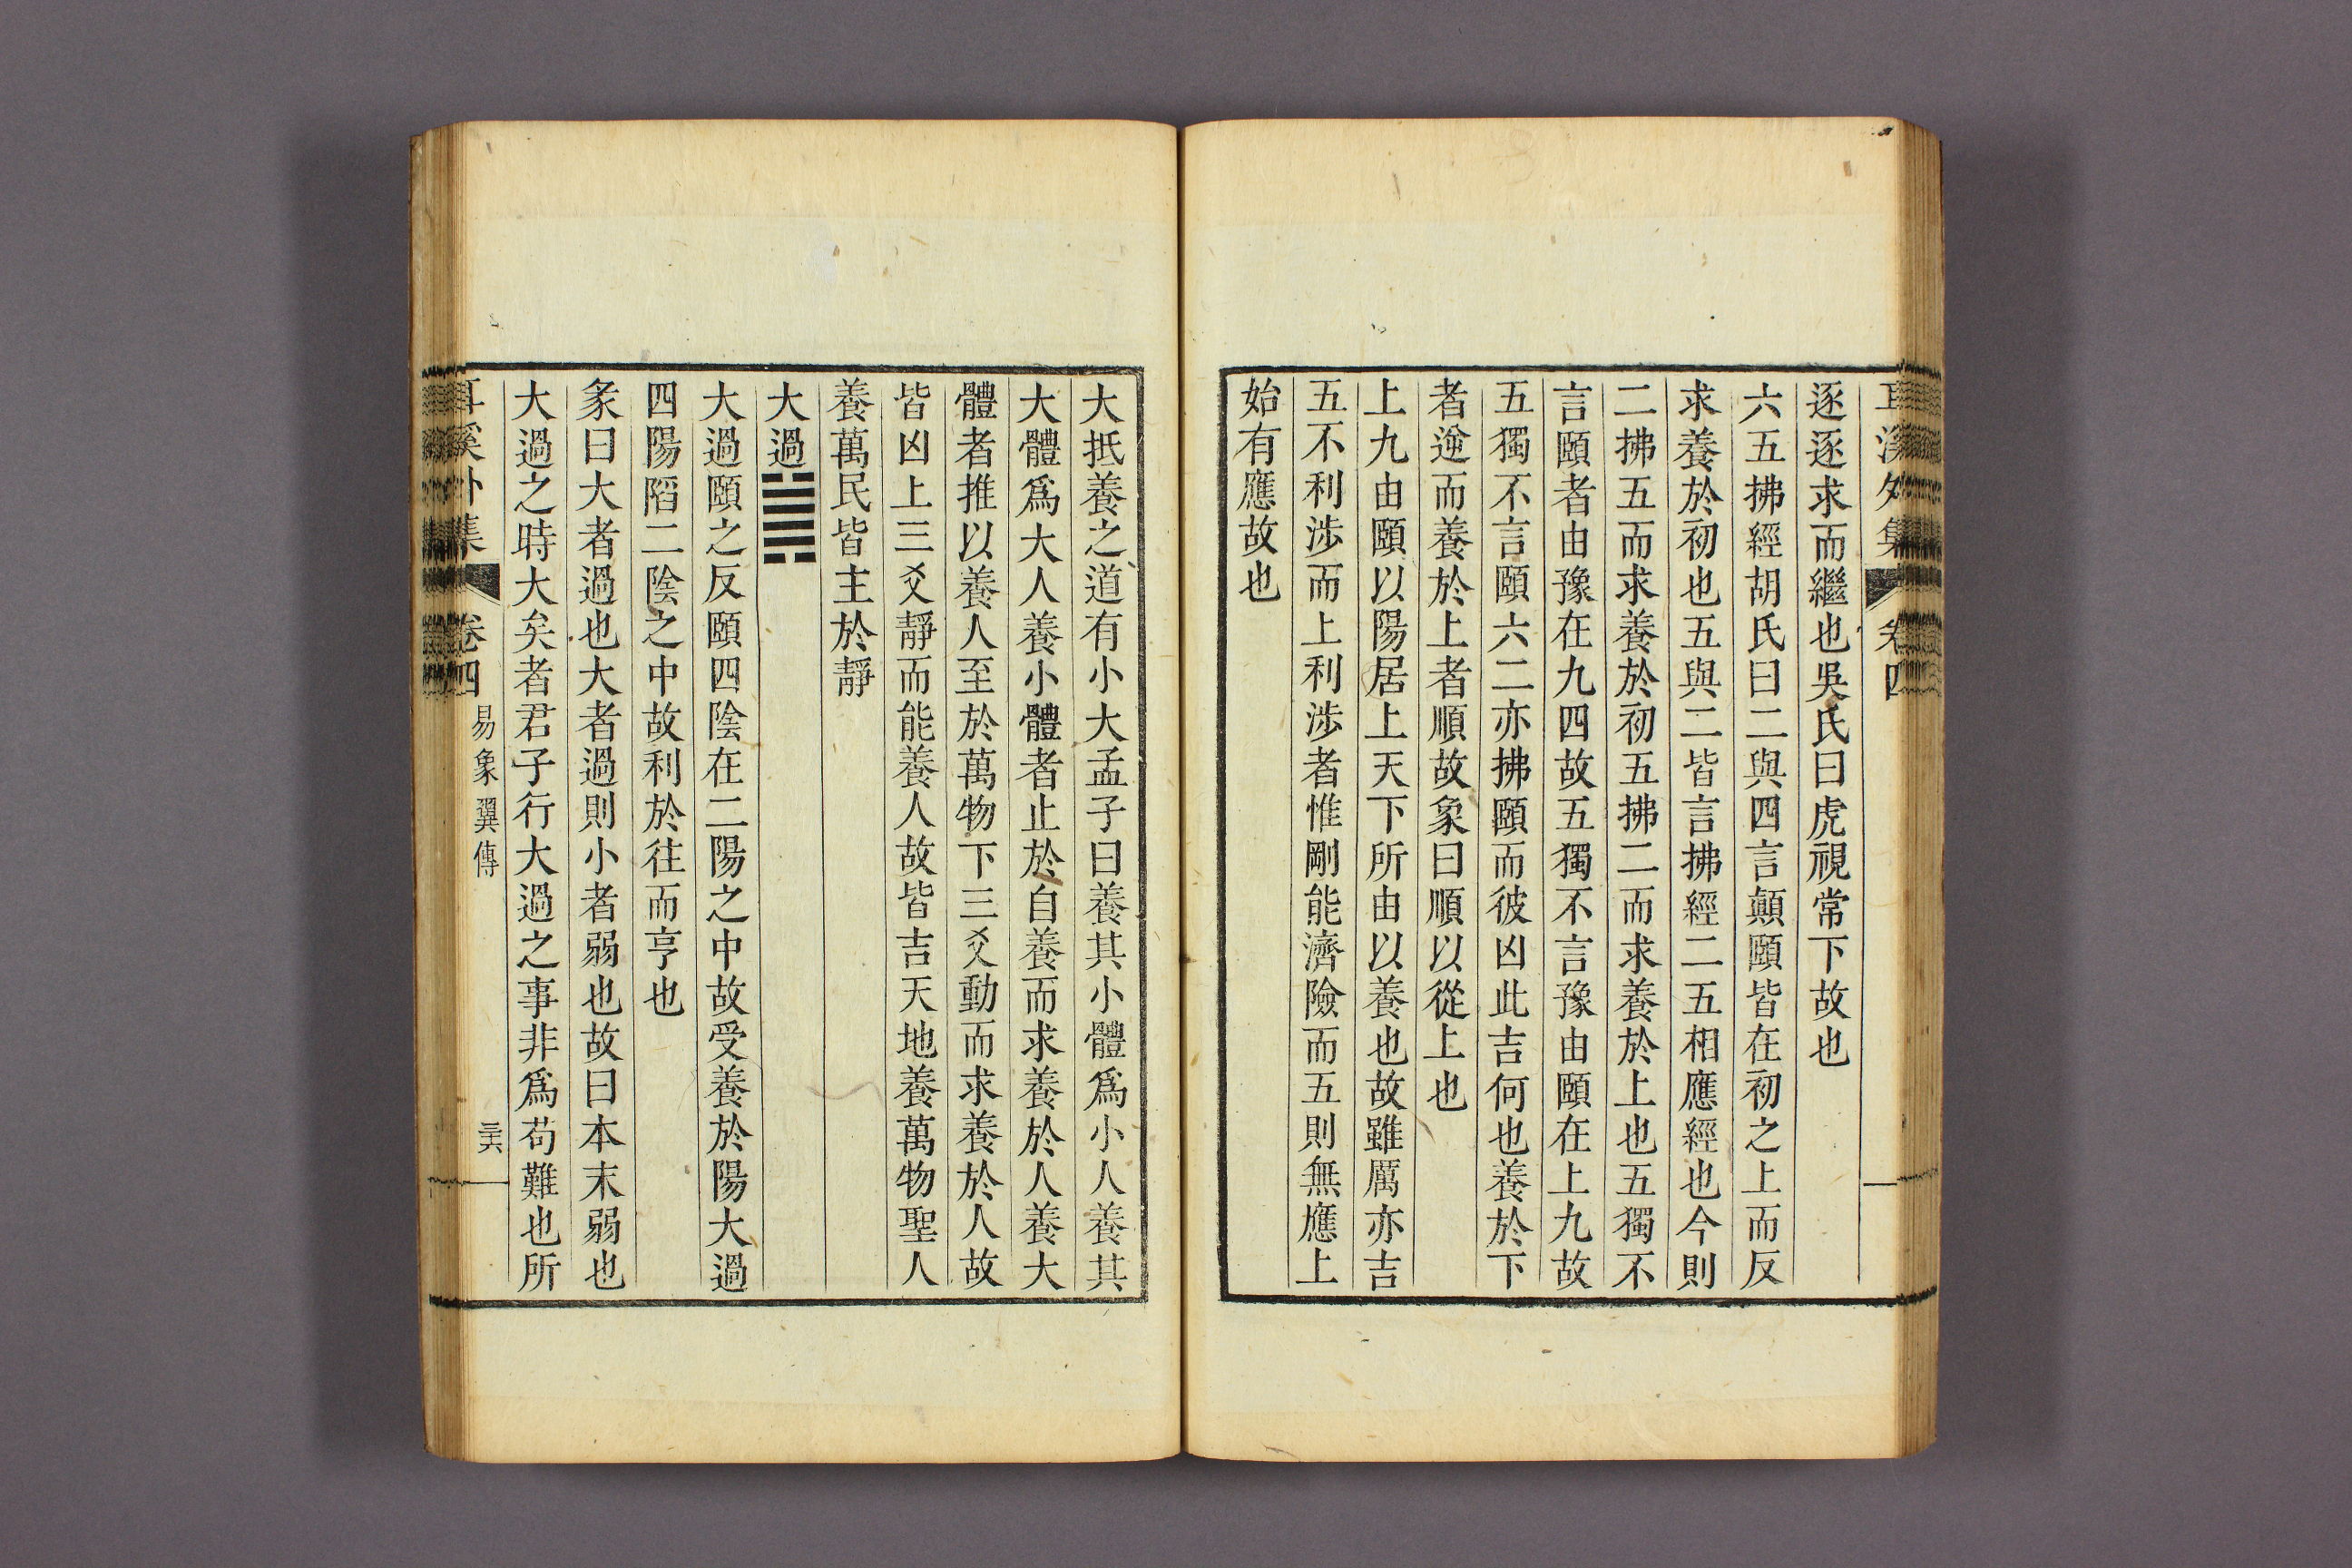 耳溪外集 卷四
逐逐求而繼也吳氏曰虎視常下故也
六五拂經胡氏曰二與四言顛頤皆在初之上而反
求養於初也五與二皆言拂經二五相應經也今則
二拂五而求養於初五拂二而求養於上也五獨不
言頤者由豫在九四故五獨不言豫由頤在上九故
五獨不言頤六二亦拂頤而彼凶此吉何也養於下
者逆而養於上者順故象曰順以從上也
上九由頤以陽居上天下所由以養也故雖厲亦吉
五不利涉而上利涉者惟剛能濟險而五則無應上
始有應故也
大抵養之道有小大孟子曰養其小體爲小人養其
大體爲大人養小體者止於自養而求養於人養大
體者推以養人至於萬物下三爻動而求養於人故
皆凶上三爻靜而能養人故皆吉天地養萬物聖人
養萬民皆主於靜
大過䷛
大過頤之反頤四陰在二陽之中故受養於陽大過
四陽陷二陰之中故利於往而亨也
彖曰大者過也大者過則小者弱也故曰本末弱也
大過之時大矣者君子行大過之事非爲苟難也所
耳溪外集 卷四 易象翼傳 三六